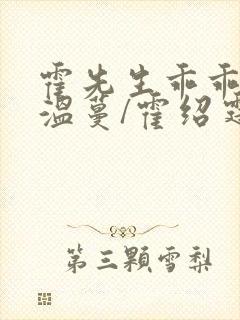 霍先生乖乖
温蔓/霍绍
第三颗雪梨